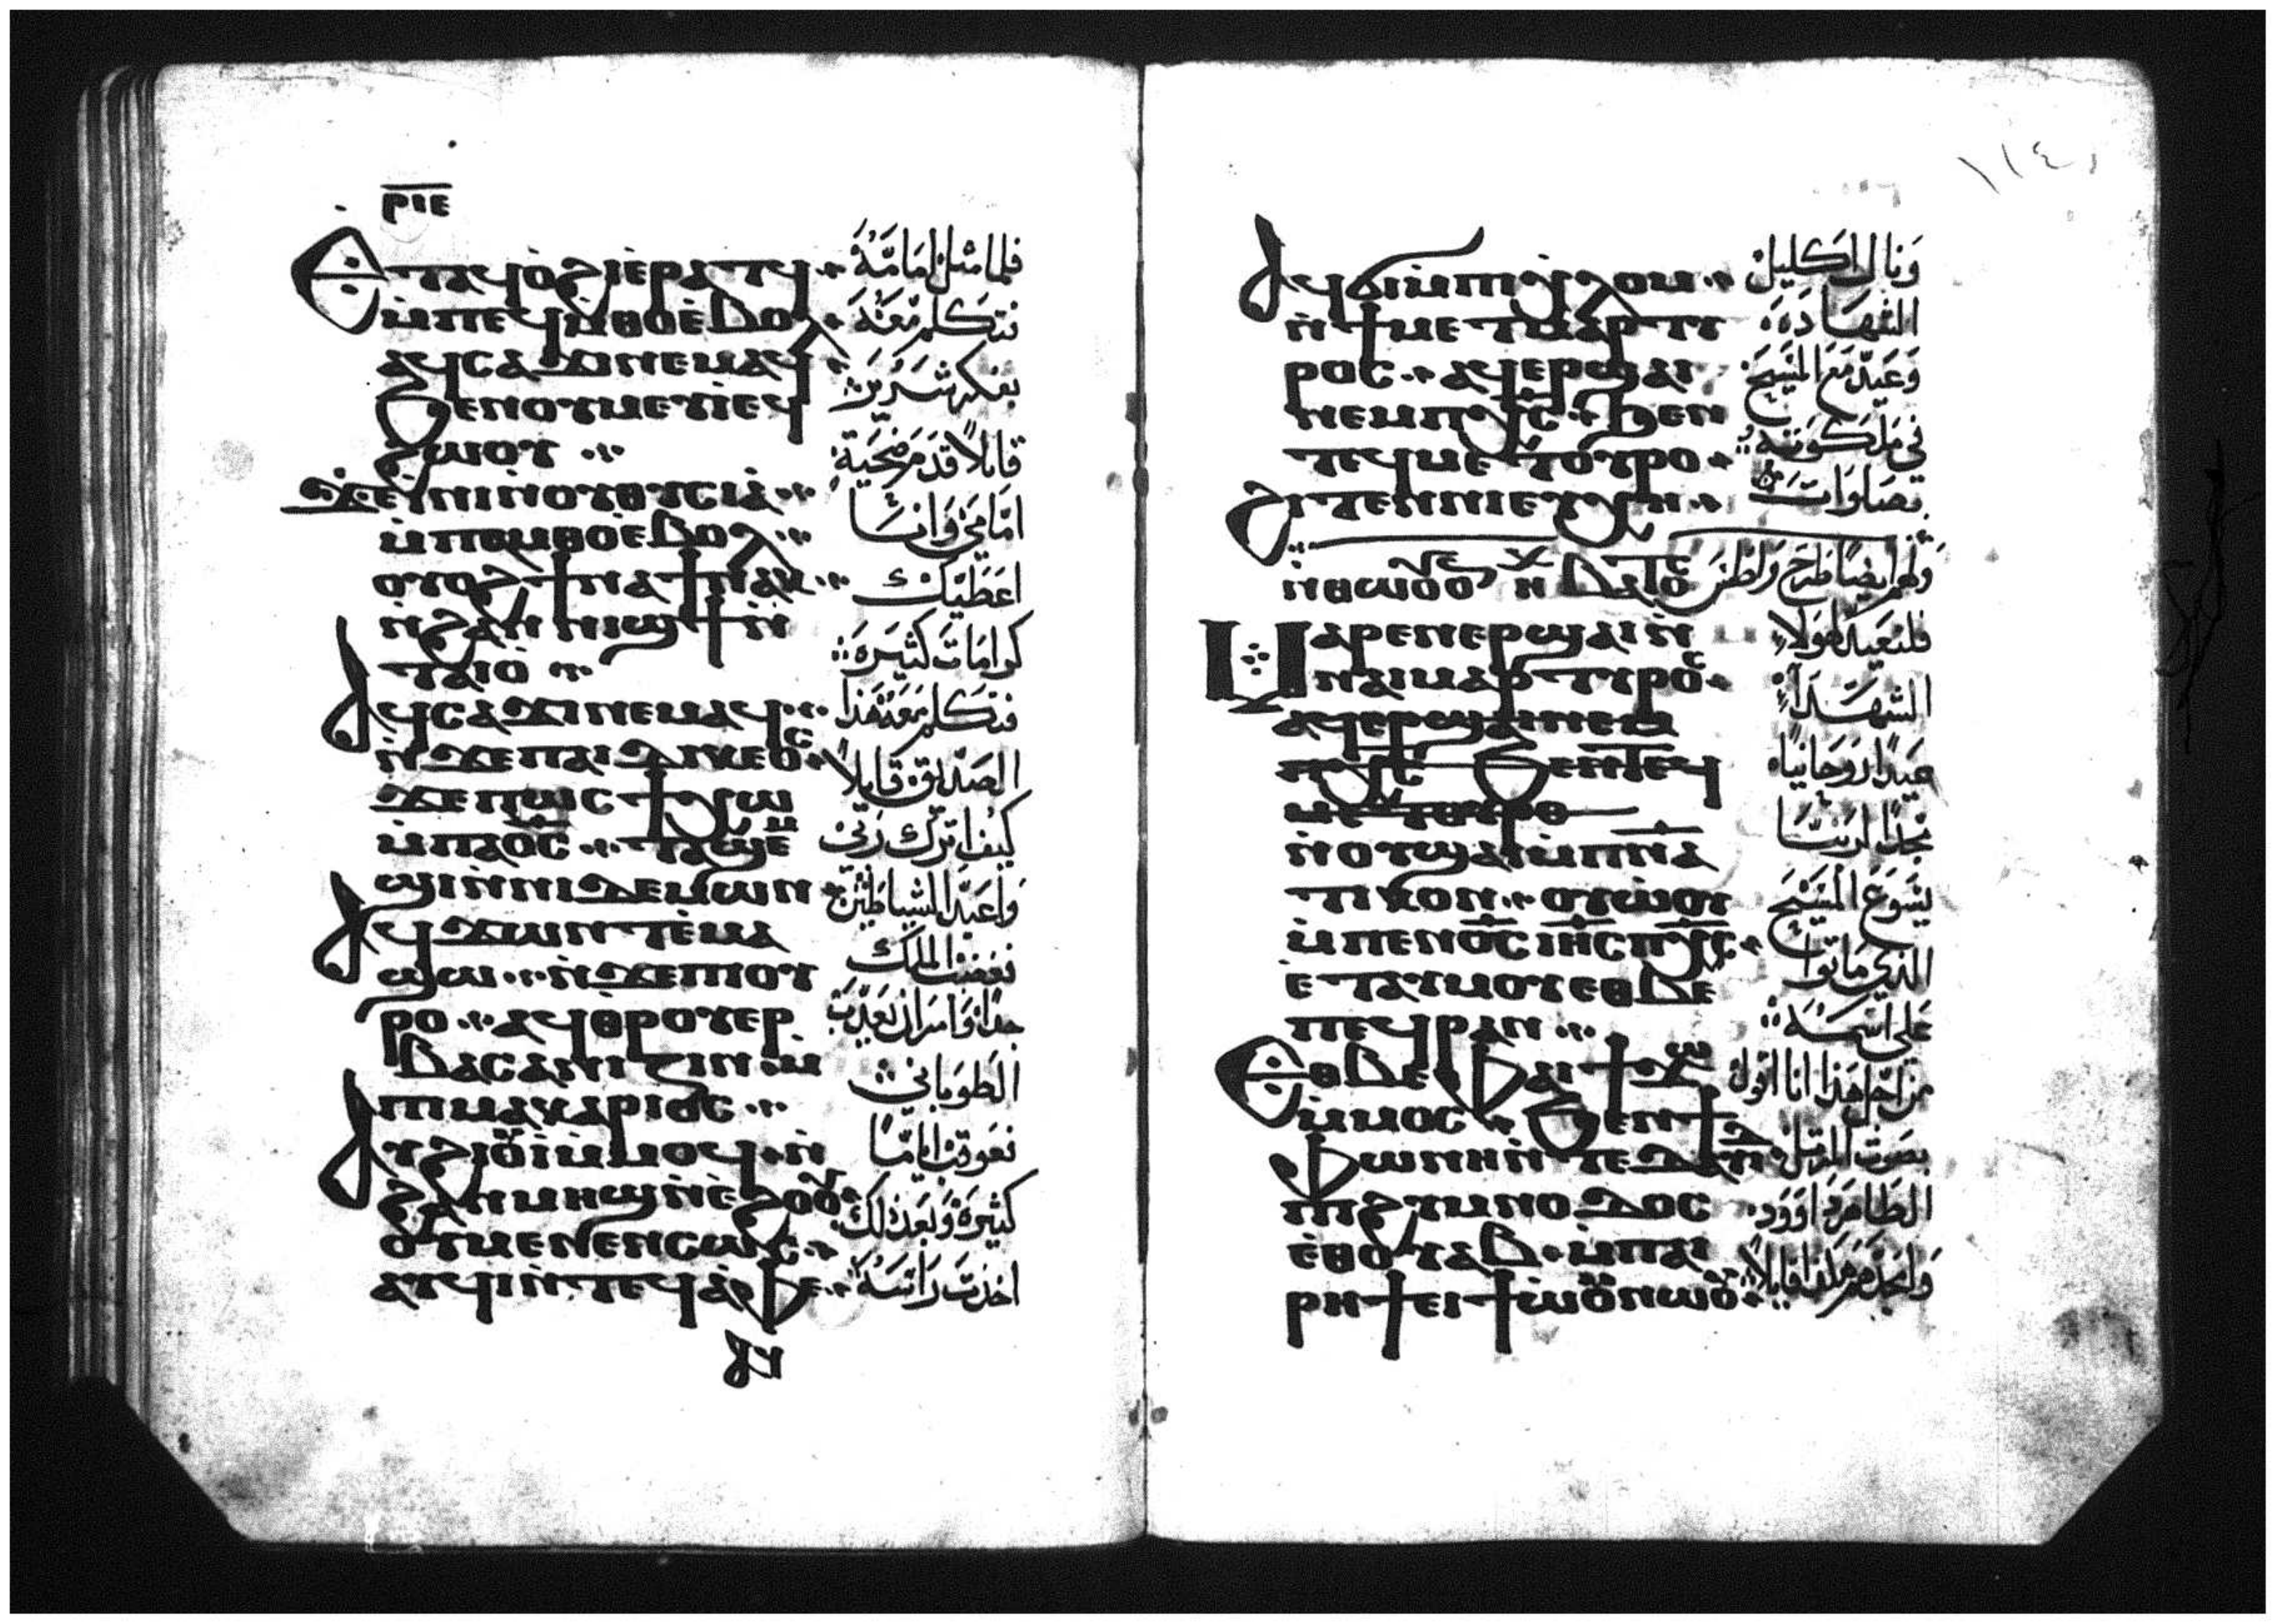 ⲣⲓⲉ
Ⲉⲧⲁϥⲟ̀ϩⲓⲉ̀ⲣⲁⲧϥ
ⲙ̀ⲡⲉϥⲙ̀ⲑⲟⲉ̀ⲃⲟⲗ
ⲁϥⲥⲁϫⲓⲛⲉⲙⲁϥ
ϧⲉⲛⲟⲩⲙⲉⲧⲓⲉϥ
ϩⲱⲟⲩ
ϫⲉⲁ̀ⲛⲓⲛ̀ⲟⲩⲑⲩⲥⲓⲁ̀
ⲙ̀ⲡⲁⲙ̀ⲑⲟⲉ̀ⲃⲟⲗ
ⲟⲩⲟϩϯⲛⲁϯⲛⲁⲕ
ⲛ̀ϩⲁⲛⲛⲓϣϯⲛ̀
ⲧⲁⲓⲟ̀
Ⲁϥⲥⲁϫⲓⲛⲉⲙⲁϥ
ⲛ̀ϫⲉⲡⲁⲓⲇⲓⲕⲉⲟⲥ
ϫⲉⲡⲱⲥϯⲭⲱ
ⲙ̀ⲡⲁⲟ̅ⲥ̅ ⲧⲁϣⲉⲙ
ϣⲓⲛ̀ⲛⲓⲇⲉⲙⲱⲛ
Ⲁϥϫⲱⲛⲧⲉ̀ⲙⲁ
ϣⲱ ⲛ̀ϫⲉⲡⲓⲟⲩ
ⲣⲟ ⲁϥⲑⲣⲟⲩⲉⲣ
ⲃⲁⲥⲁⲛⲓⲍⲓⲛ ⲙ̀
ⲡⲓⲙⲁⲕⲁⲣⲓⲟⲥ
Ⲁⲩϩⲓⲟⲩⲓ̀ⲙ̀ⲙⲟϥ ⲛ̀
ϩⲁⲛⲙⲏϣⲛ̀ⲉ̀ϩⲟⲟⲩ
ⲟⲩⲙⲉⲛⲉⲛⲥⲱⲥ
ⲁⲩⲱ̀ⲗⲓⲛ̀ⲧⲉϥⲁ̀ⲫⲉ
فلما مثل امامه
فتكلم معه
بفكر شرير
قايلا قدم ضحية
امامي وانا
اعطيك
كرامات كثيره
فتكلم معه هذا
الصديق قايلا
كيف اترك ربي
واعبد الشياطين
فغضب الملك
جدا وامر ان يعذب
الطوباني
فعوقب اياما
كثيرة وبعد ذلك
اخذت راسه
١١٤
Ⲁϥϭⲓⲙ̀ⲡⲓⲭ̀ⲗⲟⲙ
ⲛ̀ϯⲙⲉⲧⲙⲁⲣⲧⲓ
ⲣⲟⲥ ⲁϥⲉⲣϣⲁⲓ
ⲛⲉⲙⲡⲭ̅ⲥ̅ ϧⲉⲛ
ⲧⲉϥⲙⲉⲧⲟⲩⲣⲟ
Ϩⲓⲧⲉⲛⲛⲓⲉⲩⲭⲏ
Ⲙⲁⲣⲉⲛⲉⲣϣⲁⲓⲛ̀
ⲛⲁⲓⲙⲁⲣⲧⲩⲣⲟⲥ
ⲁϥⲉⲣϣⲁⲓⲛⲉⲙ
ⲡⲭ̅ⲥ̅ ϧⲉⲛⲧⲉϥ
ⲙⲉⲧⲟⲩⲣⲟ
ⲛ̀ⲟⲩϣⲁⲓⲙ̀ⲡⲛⲁ
ⲧⲓⲕⲟⲛ ⲟⲩⲱ̀ⲟⲩ
ⲙ̀ⲡⲉⲛⲟ̅ⲥ̅ ⲓⲏ̅ⲥ̅ ⲡⲭ̅ⲥ̅
ⲉ̀ⲧⲁⲩⲙⲟⲩⲉⲑⲃⲉ
ⲡⲉϥⲣⲁⲛ
Ⲉⲑⲃⲉⲫⲁⲓϯϫⲱ
ⲙ̀ⲙⲟⲥ ϧⲉⲛϯ
ⲫⲱⲛⲏⲛ̀ⲧⲉⲇⲁⲇ
ⲡⲓϩⲩⲙⲛⲟⲇⲟⲥ
ⲉ̀ⲑⲟⲩⲁⲃ ⲙ̀ⲡⲁⲓ
ⲣⲏϯⲉⲓϯⲱ̀ⲟⲩⲛⲱⲟⲩ
ونال اكليل
الشهاده
وعيد مع المسيح
في ملكوته
بصلوات
ولهم ايضا طرح واطس
فلنعيد لهولاء
الشهداء
عيدا روحانيا
مجدا لربنا
يسوع المسيح
الذي ماتوا
على اسمه
من اجل هذا انا اقول
بصوت المرتل
الطاهر داوود
وامجدهم هكذا قايلا